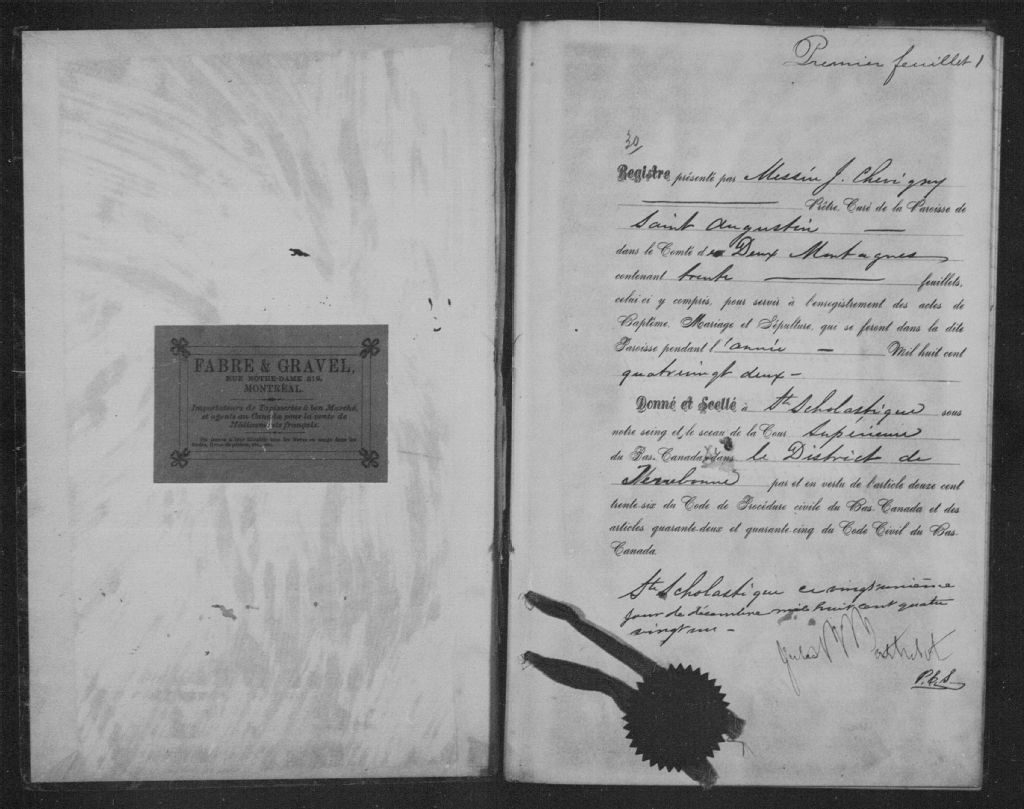 FABRE & GRAVEL,
RUE NOTRE-DAME 219,
MONTRÉAL.
Importateurs de Tapisseries à bon Marché,
et agents au Canada pour la vente de
Médicaments français.
Premier feuillet 1
30,
Registre présenté par Messire J. Chevigny
Prêtre, Curé de la Paroisse de
Saint Augustin
dans le Comté des Deux Montagnes
contenant trente feuillets,
celui-ci y compris, pour servir à l'enregistrement des actes de
Baptême, Mariage et Sépulture, qui se feront dans la dite
Paroisse pendant l'année Mil huit cent
quatrevingt deux -
Donné et Scellé à Ste Scholastique sous
notre seing et le sceau de la Cour Supérieure
du Bas-Canada dans le District de
Terrebonne par et en vertu de l'article douze cent
trente-six du Code de Procédure civile du Bas-Canada et des
articles quarante-deux et quarante-cinq du Code Civil du Bas-
Canada.
Ste Scholastique ce vingtunième
jour de décembre mil huit cent quatre
vingt un -
Jules Berthelot
P.C.S.